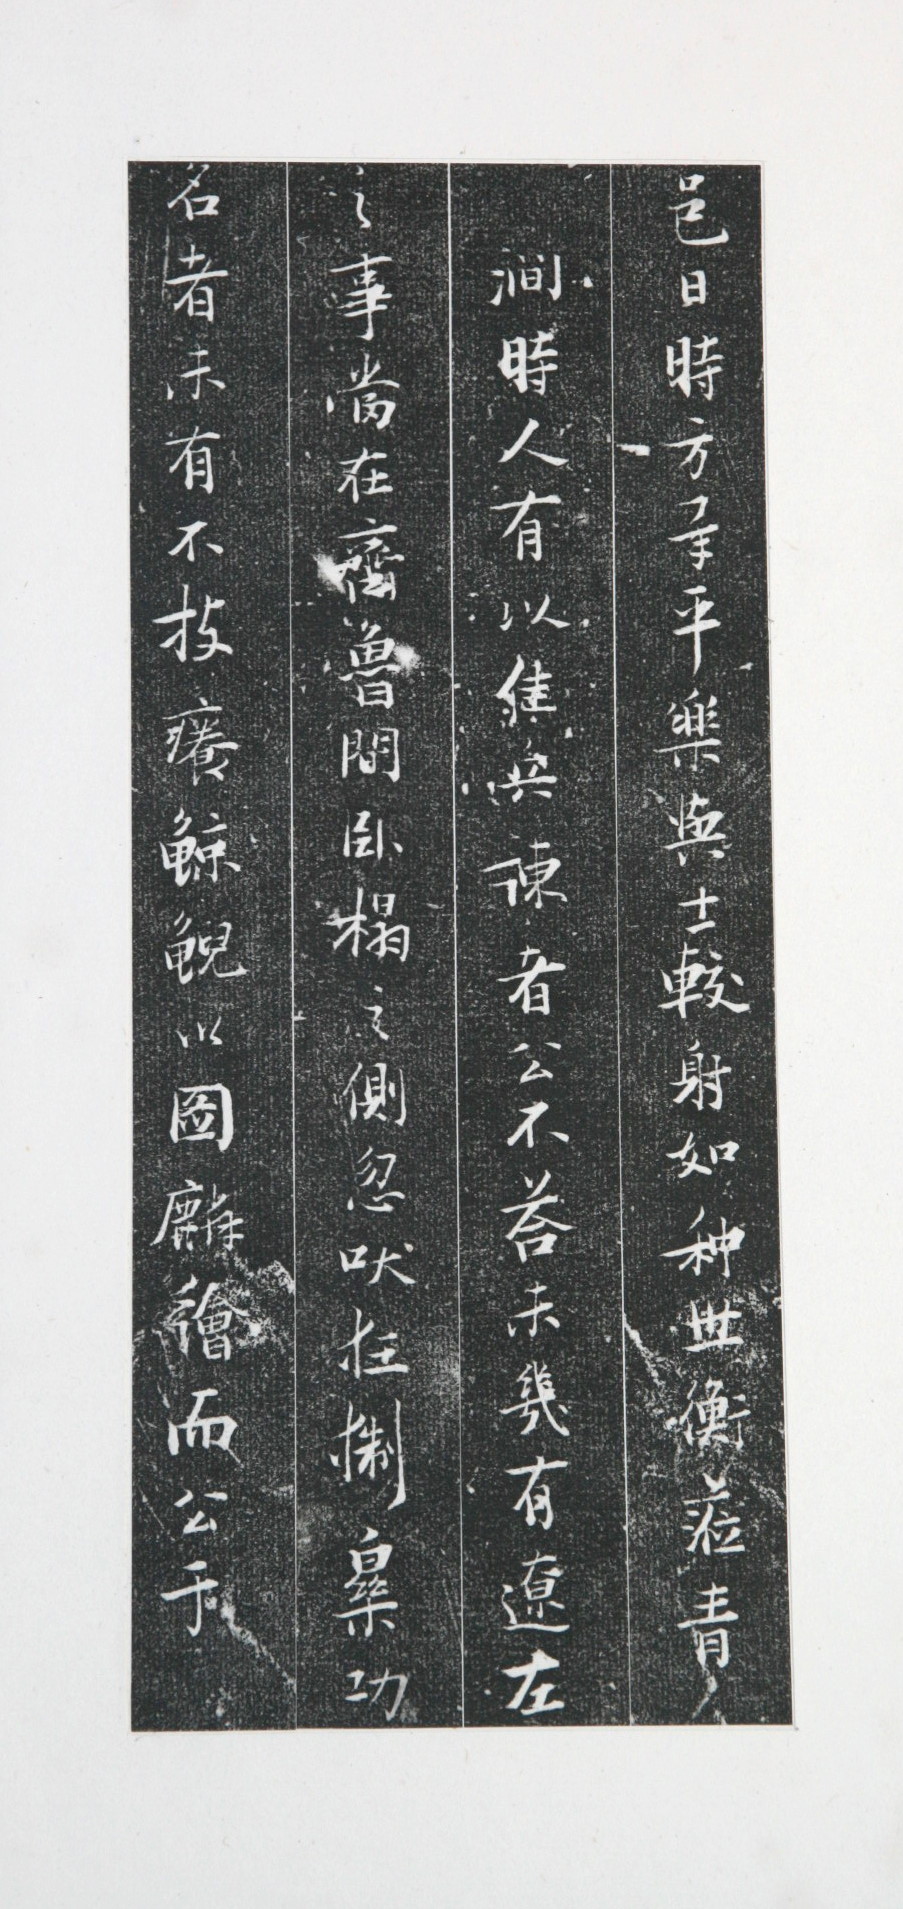 邑日時方承平樂與士較射如种世衡蒞青
澗時人有以佳兵諫者公不荅未幾有遼左
之事當在齊魯間臥榻之側忽吠狂猘梟功
名者未有不技癢鯨鯢以圖麟繪而公于